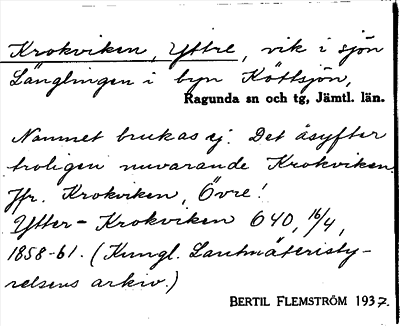 Krokviken, Yttre, vik i sjön
Länglingen i byn Köttsjön,
Ragunda sn och tg, Jämtl. län.
Namnet brukas ej. Det åsyftar
troligen nuvarande Krokviken.
Jfr. Krokviken, Övre!
Ytter-Krokviken 640, 16/4,
1858-61. (Kungl. Lantmäteristy-
relsens arkiv.)
BERTIL FLEMSTRÖM 1937.